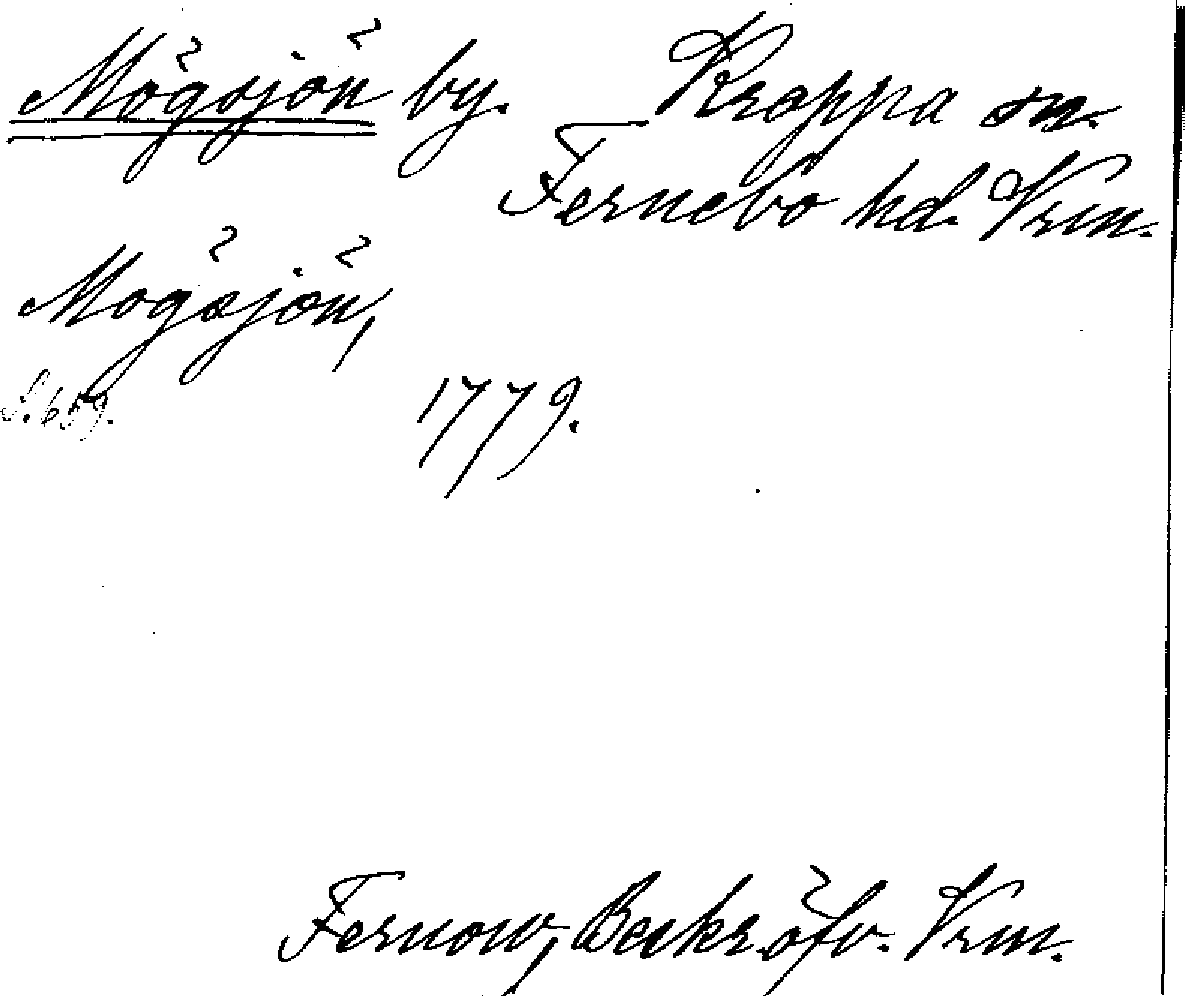 Mögsjön by. Kroppa sn.
Fernebo hd. Vrm.
Mögsjön,
S. 659.
1779.
Fernow, Beskräfv. Vrm.